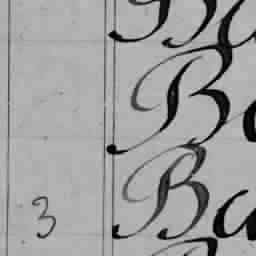 Ba
Ba
3 Ba